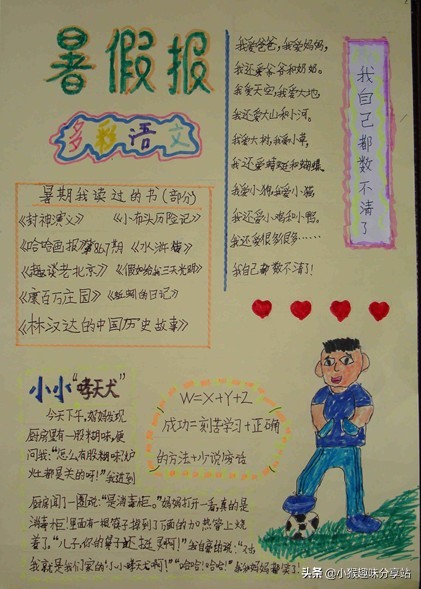 暑假报
多彩语文
暑期我读过的书(部分)
《封神演义》 《小布头历险记》
《哈哈画报》第867期 《水浒传》
《趣谈老北京》 《假如给我三天光明》
《康百万庄园》 《蚯蚓的日记》
《林汉达的中国历史故事》
我爱爸爸,我爱妈妈,
我还爱爷爷和奶奶。
我爱天空,我爱大地,
我还爱大山和小河。
我爱大树,我爱小草,
我还爱蜻蜓和蝴蝶。
我爱小狗,我爱小猫
我还爱小鸡和小鸭,
我还爱很多很多……
我自己都数不清了!
我自己都数不清了
小小“哮天犬”
今天下午,妈妈发现
厨房里有一股糊味,便
问我:“怎么有股糊味?炉
灶都是关的呀!”我进到
厨房闻了一圈说:“是消毒柜。”妈妈打开一看,真的是
消毒柜!里面有一根筷子掉到了下面的加热管上烧
着了。“儿子,你的鼻子还挺灵啊!”我自豪的说:“
我就是我们家的‘小小哮天犬’啊!”“哈哈!哈哈!”我和妈妈都笑了
W=X+Y+Z
成功=刻苦学习+正确
的方法+少说废话
头条@小猴趣味分享站